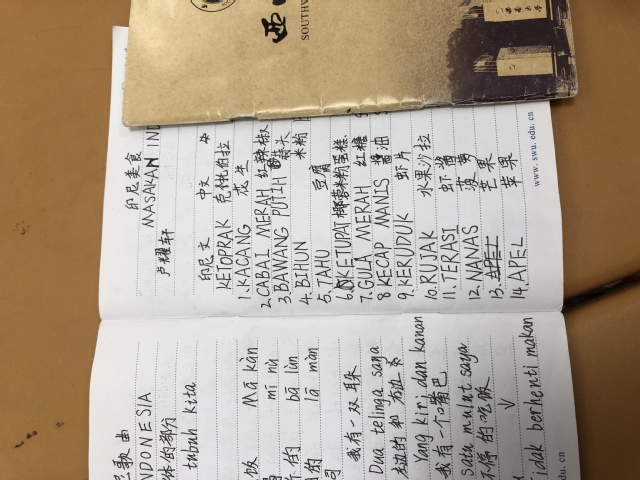 西
SOUTHW
印尼美食
MASAKAN IND
卢耀轩
印尼文 中文
KETOPRAK 克托伯拉
1. KACANG 花生
2. CABAI MERAH 红辣椒
3. BAWANG PUTIH 蒜头
4. BIHUN 米粉
5. TAHU 豆腐
6. KETUPAT 椰浆米粉蛋糕
7. GULA MERAH 红糖
8 KECAP MANIS 酱油
9. KERUDUK 虾片
10. RUJAK 水果沙拉
11. TERASI 虾酱
12. NANAS 菠萝
13. APEL 芒果
14. APEL 苹果
www.swu.edu.cn
歌曲
INDONESIA
体的部分
tubah kita
饭 Mā kàn
mí nù
的 bā lùn
的 lā màn
我有一双耳朵
Dua telinga saya
左边的和右边的
Yang kiri dan kanan
我有一个嘴巴
Satu mulut saya
不停的吃饭
Tidak berhenti makan
du.cn